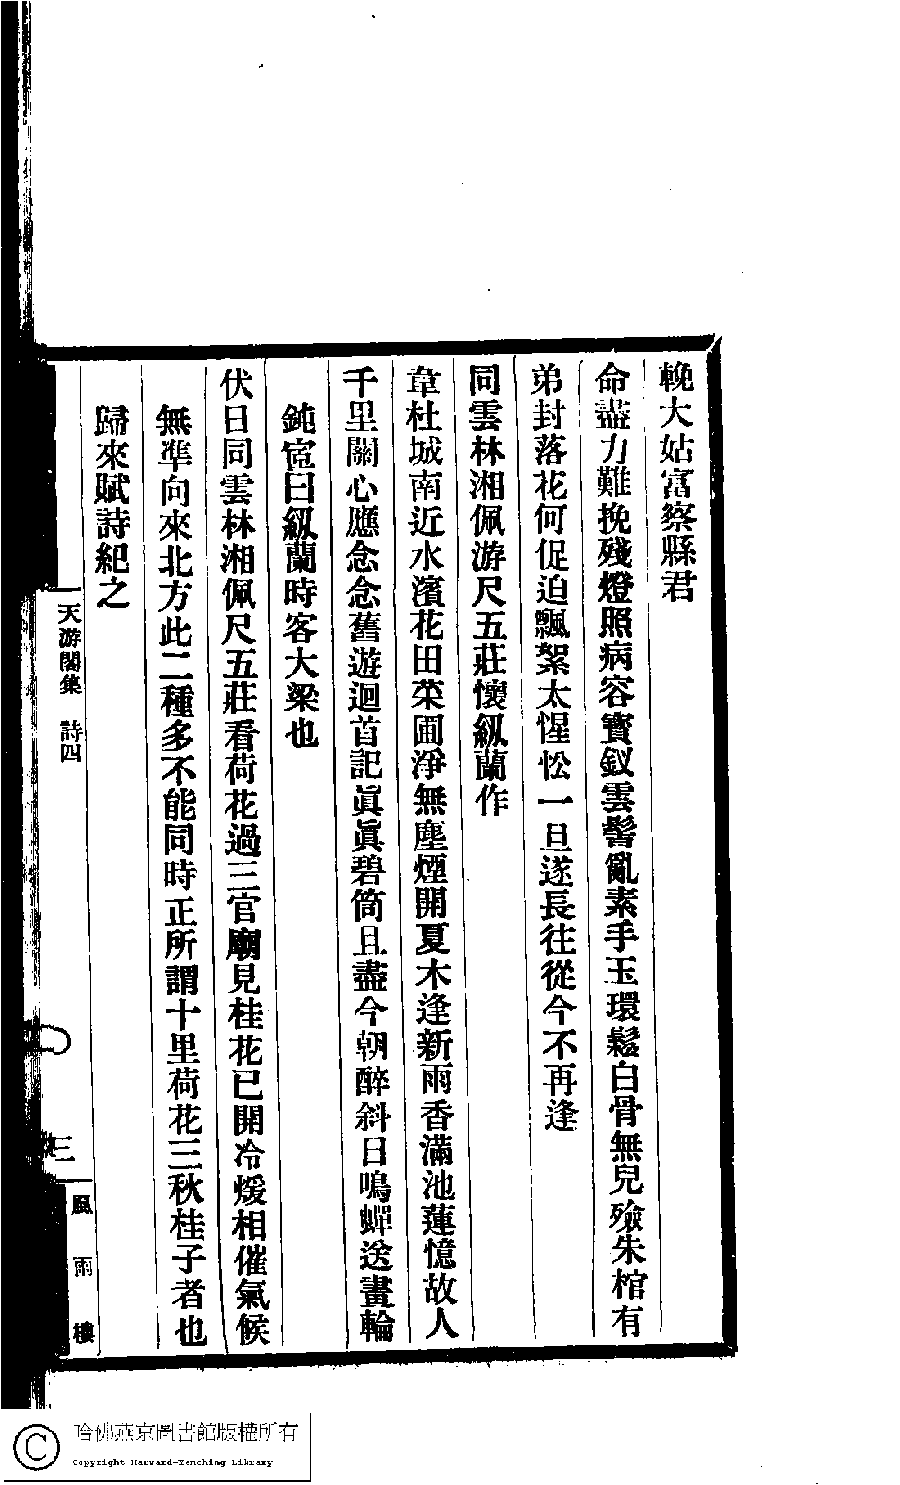 輓大姑富察縣君
命盡力難挽殘燈照病容寳釵雲鬢亂素手玉環鬆白骨無兒殮朱棺有
弟封落花何促迫飄絮太惺忪一旦遂長往從今不再逢
同雲林湘佩游尺五莊懷紉蘭作
韋杜城南近水濱花田菜圃淨無塵煙開夏木逢新雨香滿池蓮憶故人
千里關心應念念舊遊迴首記眞眞碧筒且盡今朝醉斜日鳴蟬送畫輪
鈍宧曰紉蘭時客大梁也
伏日同雲林湘佩尺五莊看荷花過三官廟見桂花已開冷煖相催氣候
無準向來北方此二種多不能同時正所謂十里荷花三秋桂子者也
歸來賦詩紀之
天游閣集 詩四
三
風雨樓
哈佛燕京圖書館版權所有
Copyright Harvard-Yenching Library